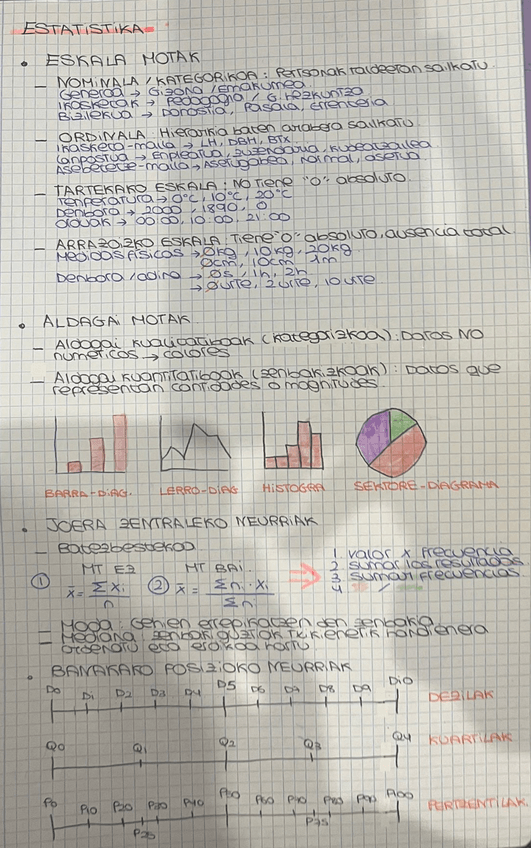 ESTATISTIKA
• ESKALA MOTAK
– NOMINALA / KATEGORIKOA: Pertsonak taldeetan sailkatu.
Generoa → Gizona / emakumea
Ikasketak → Pedagogia / G. Hezkuntza
Bizilekua → Donostia, Pasaia, Errenteria
– ORDINALA. Hierarkia baten arabera sailkatu.
Ikasketa-maila → LH, DBH, BTX
Lanpostua → Enplegatua, zuzendaria, kudeatzailea
Asebetetze-maila → Asetugabea, normal, asetua.
– TARTEKAKO ESKALA: NO tiene "0" absoluto.
Tenperatura → 0°C, 10°C, 20°C
Denbora → 2000, 1890, 0
Orduak → 00:00, 10:00, 21:00
– ARRAZOIZKO ESKALA: Tiene "0" absoluto, ausencia total
Medidas físicas → 0kg, 10kg, 20kg
0cm, 10cm, 1m
Denbora / adina → 0s, 1h, 2h
→ 0urte, 2urte, 10urte
• ALDAGAI MOTAK
– Aldagai kualitatiboak (kategorizkoa): Datos NO
numéricos → colores
– Aldagai kuantitatiboak (zenbakizkoak): Datos que
representan cantidades o magnitudes.
BARRA-DIAG. LERRO-DIAG HISTOGRA SEKTORE-DIAGRAMA
• JOERA ZENTRALEKO NEURRIAK
– Batezbestekoa
MT EZ MT BAI
① x̄ = Σxi / n ② x̄ = Σni · xi / Σni
1 valor x frecuencia
2 sumar los resultados
3 sumar frecuencias
4 /
– Moda: Gehien errepikatzen den zenbakia
– Mediana: zenbaki guztiak txikienetik handienera
ordenatu eta erdikoa hartu
• BANAKAKO POSIZIOKO NEURRIAK
D0 D1 D2 D3 D4 D5 D6 D7 D8 D9 D10 DEZILAK
Q0 Q1 Q2 Q3 Q4 KUARTILAK
P0 P10 P20 P30 P40 P50 P60 P70 P80 P90 P100 PERTZENTILAK
P25 P75